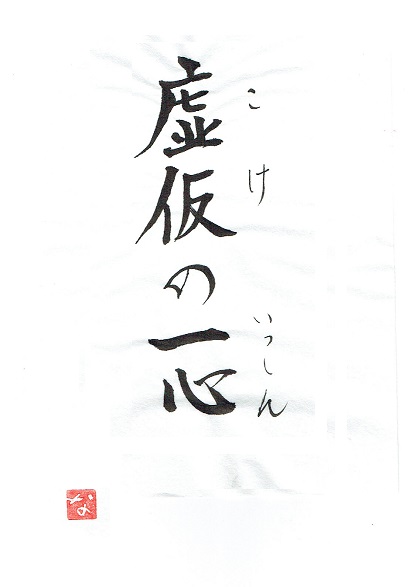 虚仮の一心
こけ
いっしん
な